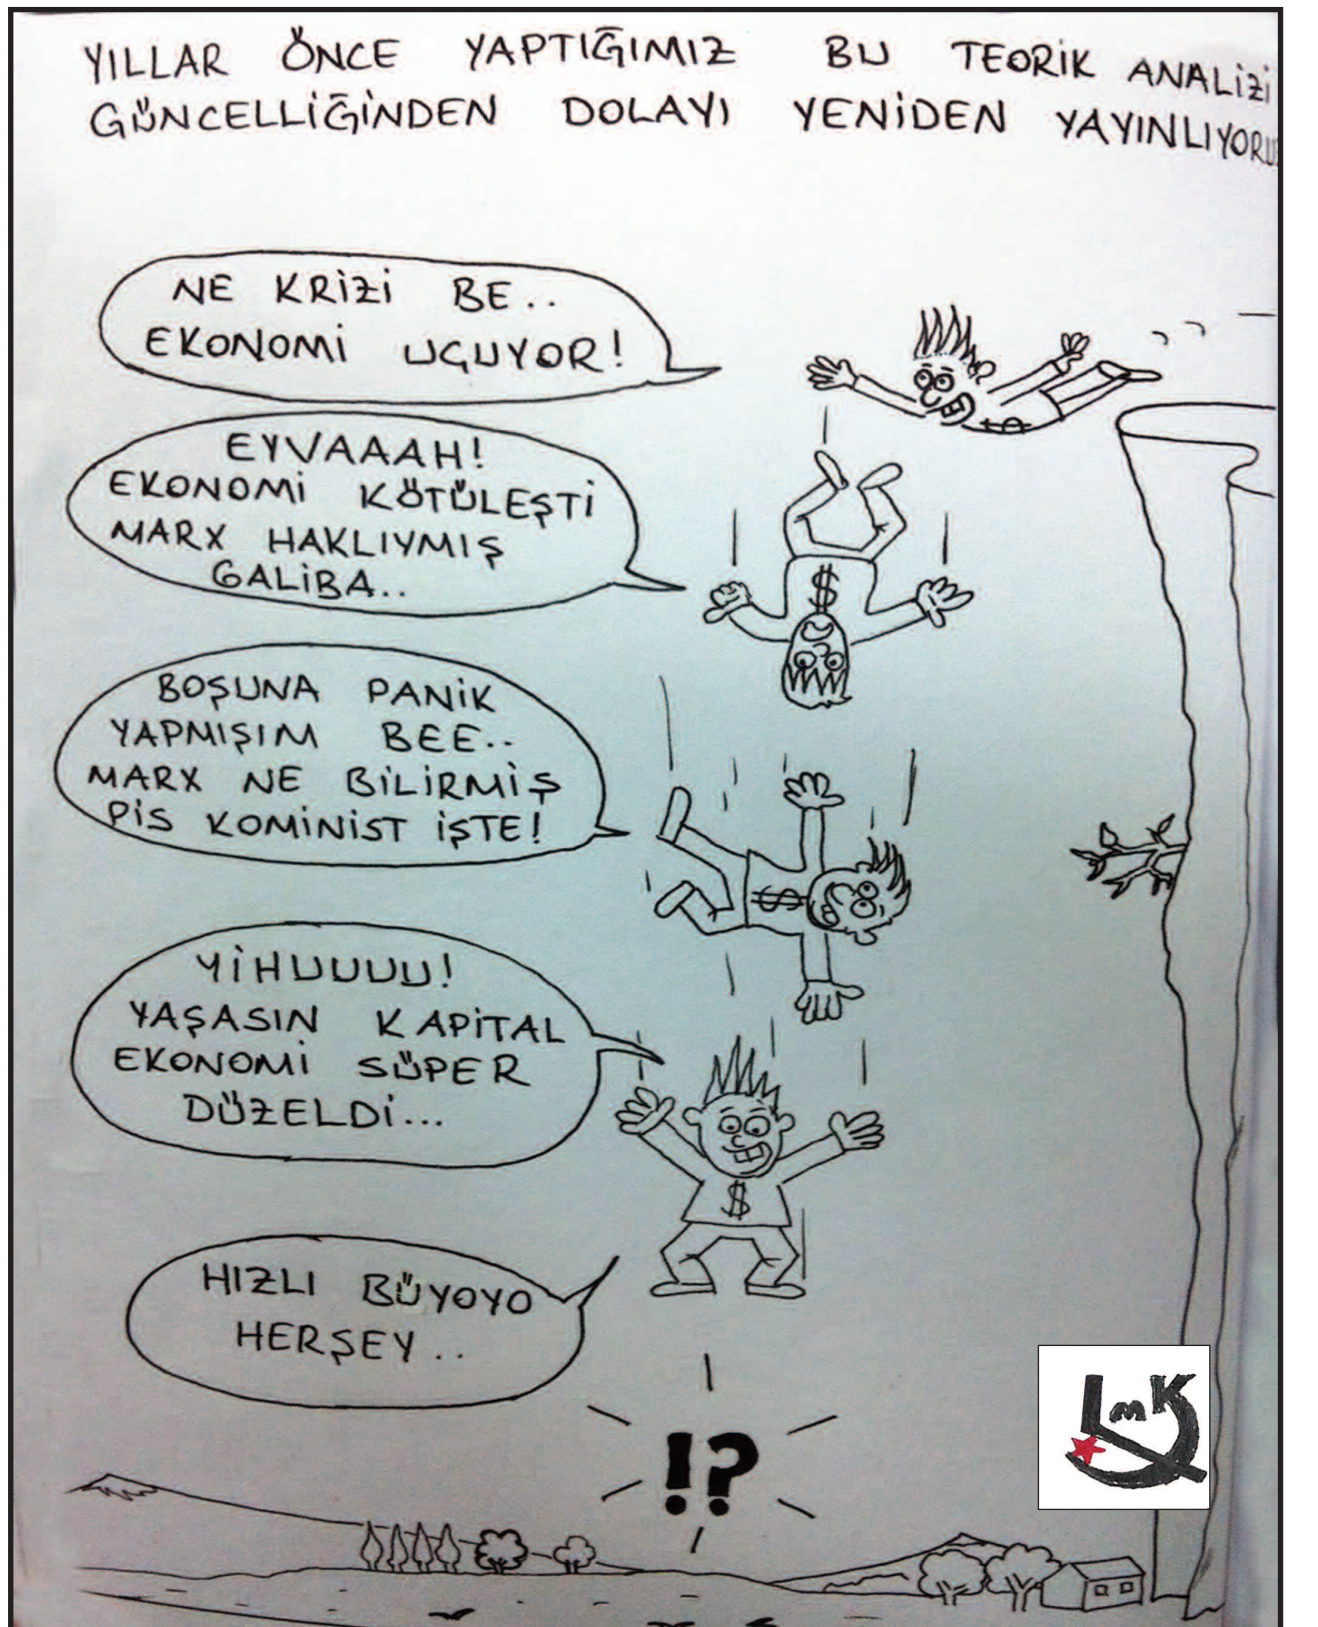 YILLAR ÖNCE YAPTIĞIMIZ BU TEORİK ANALİZİ
GÜNCELLİĞİNDEN DOLAYI YENİDEN YAYINLIYORU
NE KRİZİ BE..
EKONOMİ UÇUYOR!
EYVAAAH!
EKONOMİ KÖTÜLEŞTİ
MARX HAKLIYMIŞ
GALİBA..
$
BOŞUNA PANİK
YAPMIŞIM BEE..
MARX NE BİLİRMİŞ
PİS KOMİNİST İŞTE!
$
YİHUUUU!
YAŞASIN KAPİTAL
EKONOMİ SÜPER
DÜZELDİ...
$
HIZLI BÜYOYO
HERŞEY..
!?
LMK